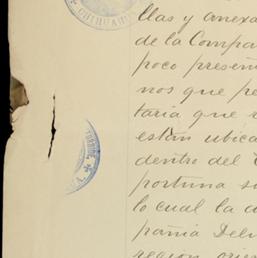 CHIHUAHUA
llas y anexa
de la Compa
poco presen
nos que pe
taria que
estan ubica
dentro del
portuna s
lo cual la d
pañia Del
region orie